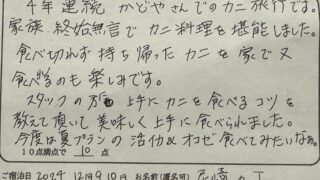 4年連続 かどやさんでのカニ旅行です。
家族 終始無言で カニ料理を堪能しました。
食べ切れず 持ち帰ったカニを 家で又
食べるのも 楽しみです。
スタッフの方 上手に カニを食べるコツを
教えて頂いて 美味しく上手に食べられました。
今度は夏プランの 活仙&オコゼ食べてみたいなぁ。
10点満点で 10 点
ご宿泊日 2024年12月9,10日 お名前(匿名可)